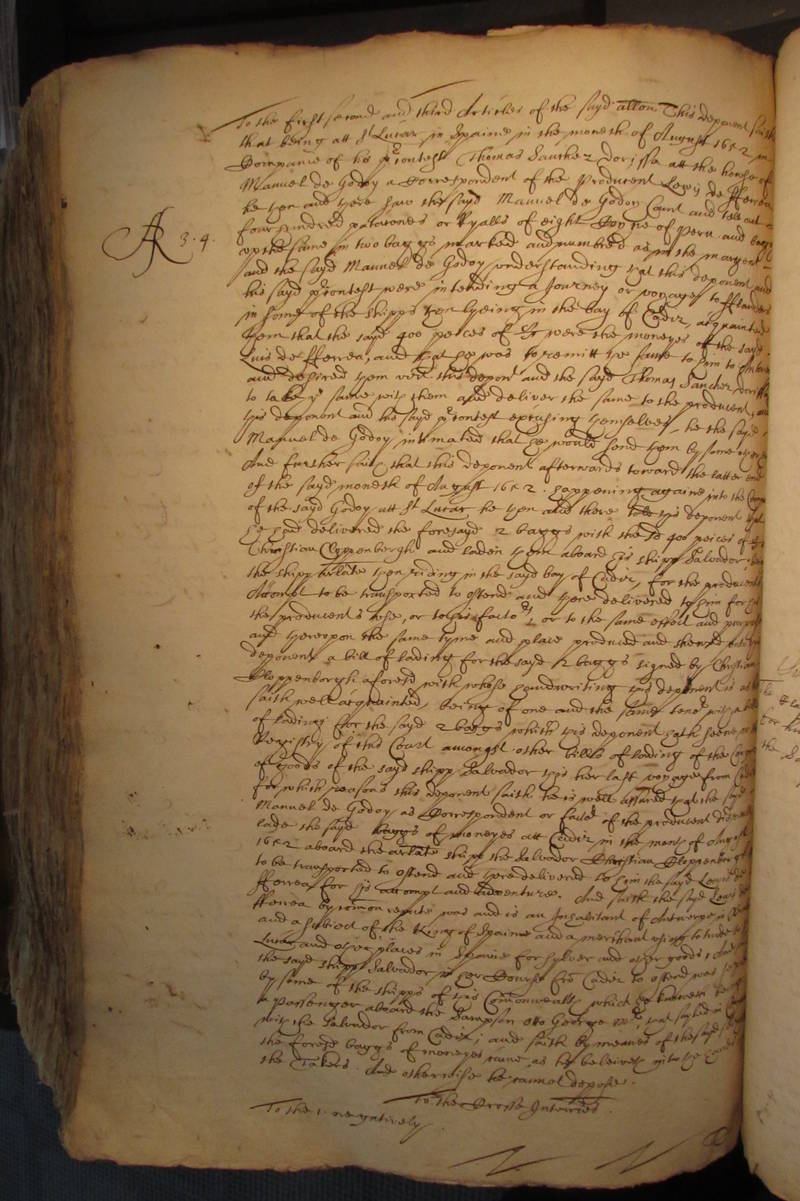 To the first second and third Articles of the sayd allon This deponent saith
that being att St Lucar in Spaine in the moneth of August 1652 in
Companie of his precontest Thomas Sanchez dorissa att the house of
Manuel de Godoy a Correspondent of the Producent Lewis de fferrea
he then and there saw the sayd Manuel de Godoy Count and tell out
four hundred patacones or Ryalls of eight Coyne of peru and
up the same in two baggs marked and numbred as in the margent
AR 3. 4.
and the sayd Manuel de Godoy understanding that this deponent and
his sayd precontest were intending a Journey or voyage to fflanders
in some of the shipps then lyeing in the bay of Cadiz, acquainted
them that the sayd 400 peices of 8r were the moneyes of the sayd
Luis de fferrea, and that he was to remitt the same to him to
and desired them vert this depont and the sayd Thomas Sanchez
to take ye same with them and deliver the same to the producent,
this deponent and his sayd precontest excusing themselves, he the sayd
Manuel de Godoy intimated that he would send them by some
And further saith that this deponent afterwards toward the latter end
of the sayd moneth of August 1652. happening againe into the
of the sayd Godoy att St Lucar, he then and there this deponent that
he had delivered the foresayd 2 baggs with the sd 400 peices of
Christian Cloppenborgh and laden them aboard his shipp Salvador
the shipp arlate then rideing in the sayd bay of Cadiz, for the producents
Accompt to be transported to ostend and there delivered to him for
the producents use, or to his factor, or to the same effect and purpose
and thereupon the same tyme and place produced and shewed
deponent a bill of lading for the sayd 2 baggs signed by Christian
Cloppenborgh aforesd with whose handwriting this deponent is as
saith well acquainted, being of one and the same tenor with
of lading for the sayd 2 baggs which this deponent hath seene in
Registry of this Court amongst other bills of lading of the
of goods of the sayd shipp Salvador this her last voyage from
for which reasons this deponent saith he is well assured that the sayd
Manuel de Godoy as Correspondent or factor of the producent did
lade the sayd baggs of moneyes att Cadiz in the moneth of August
1652 aboard the arlate shipp the Salvador Christian Cloppenborgh
to be transported to ostend and there delivered to him the sayd
fferrea for his accompt and adventure. And saith the sayd Lewis de
fferrea by common repute was and is an Inhabitant of Antwerpe in
and a subiect of the King of Spaine and a merchant useing to trade to
Lucar and other places in Spaine for sylver and other goods; And
the sayd shipp Salvador in her Course from Cadiz to ostend was
by some of the shipps of this Commonwealth, which he knoweth
a Passenger aboard the Sampson otto George mr that sayled in
with the Salvador from Cadiz; and saith by meanes of the sayd
the foresd baggs of moneyes came as he beleiveth into the
the Takers. And otherwise he cannot depose.
To the Crosse Interries.
To the 1. negatively.